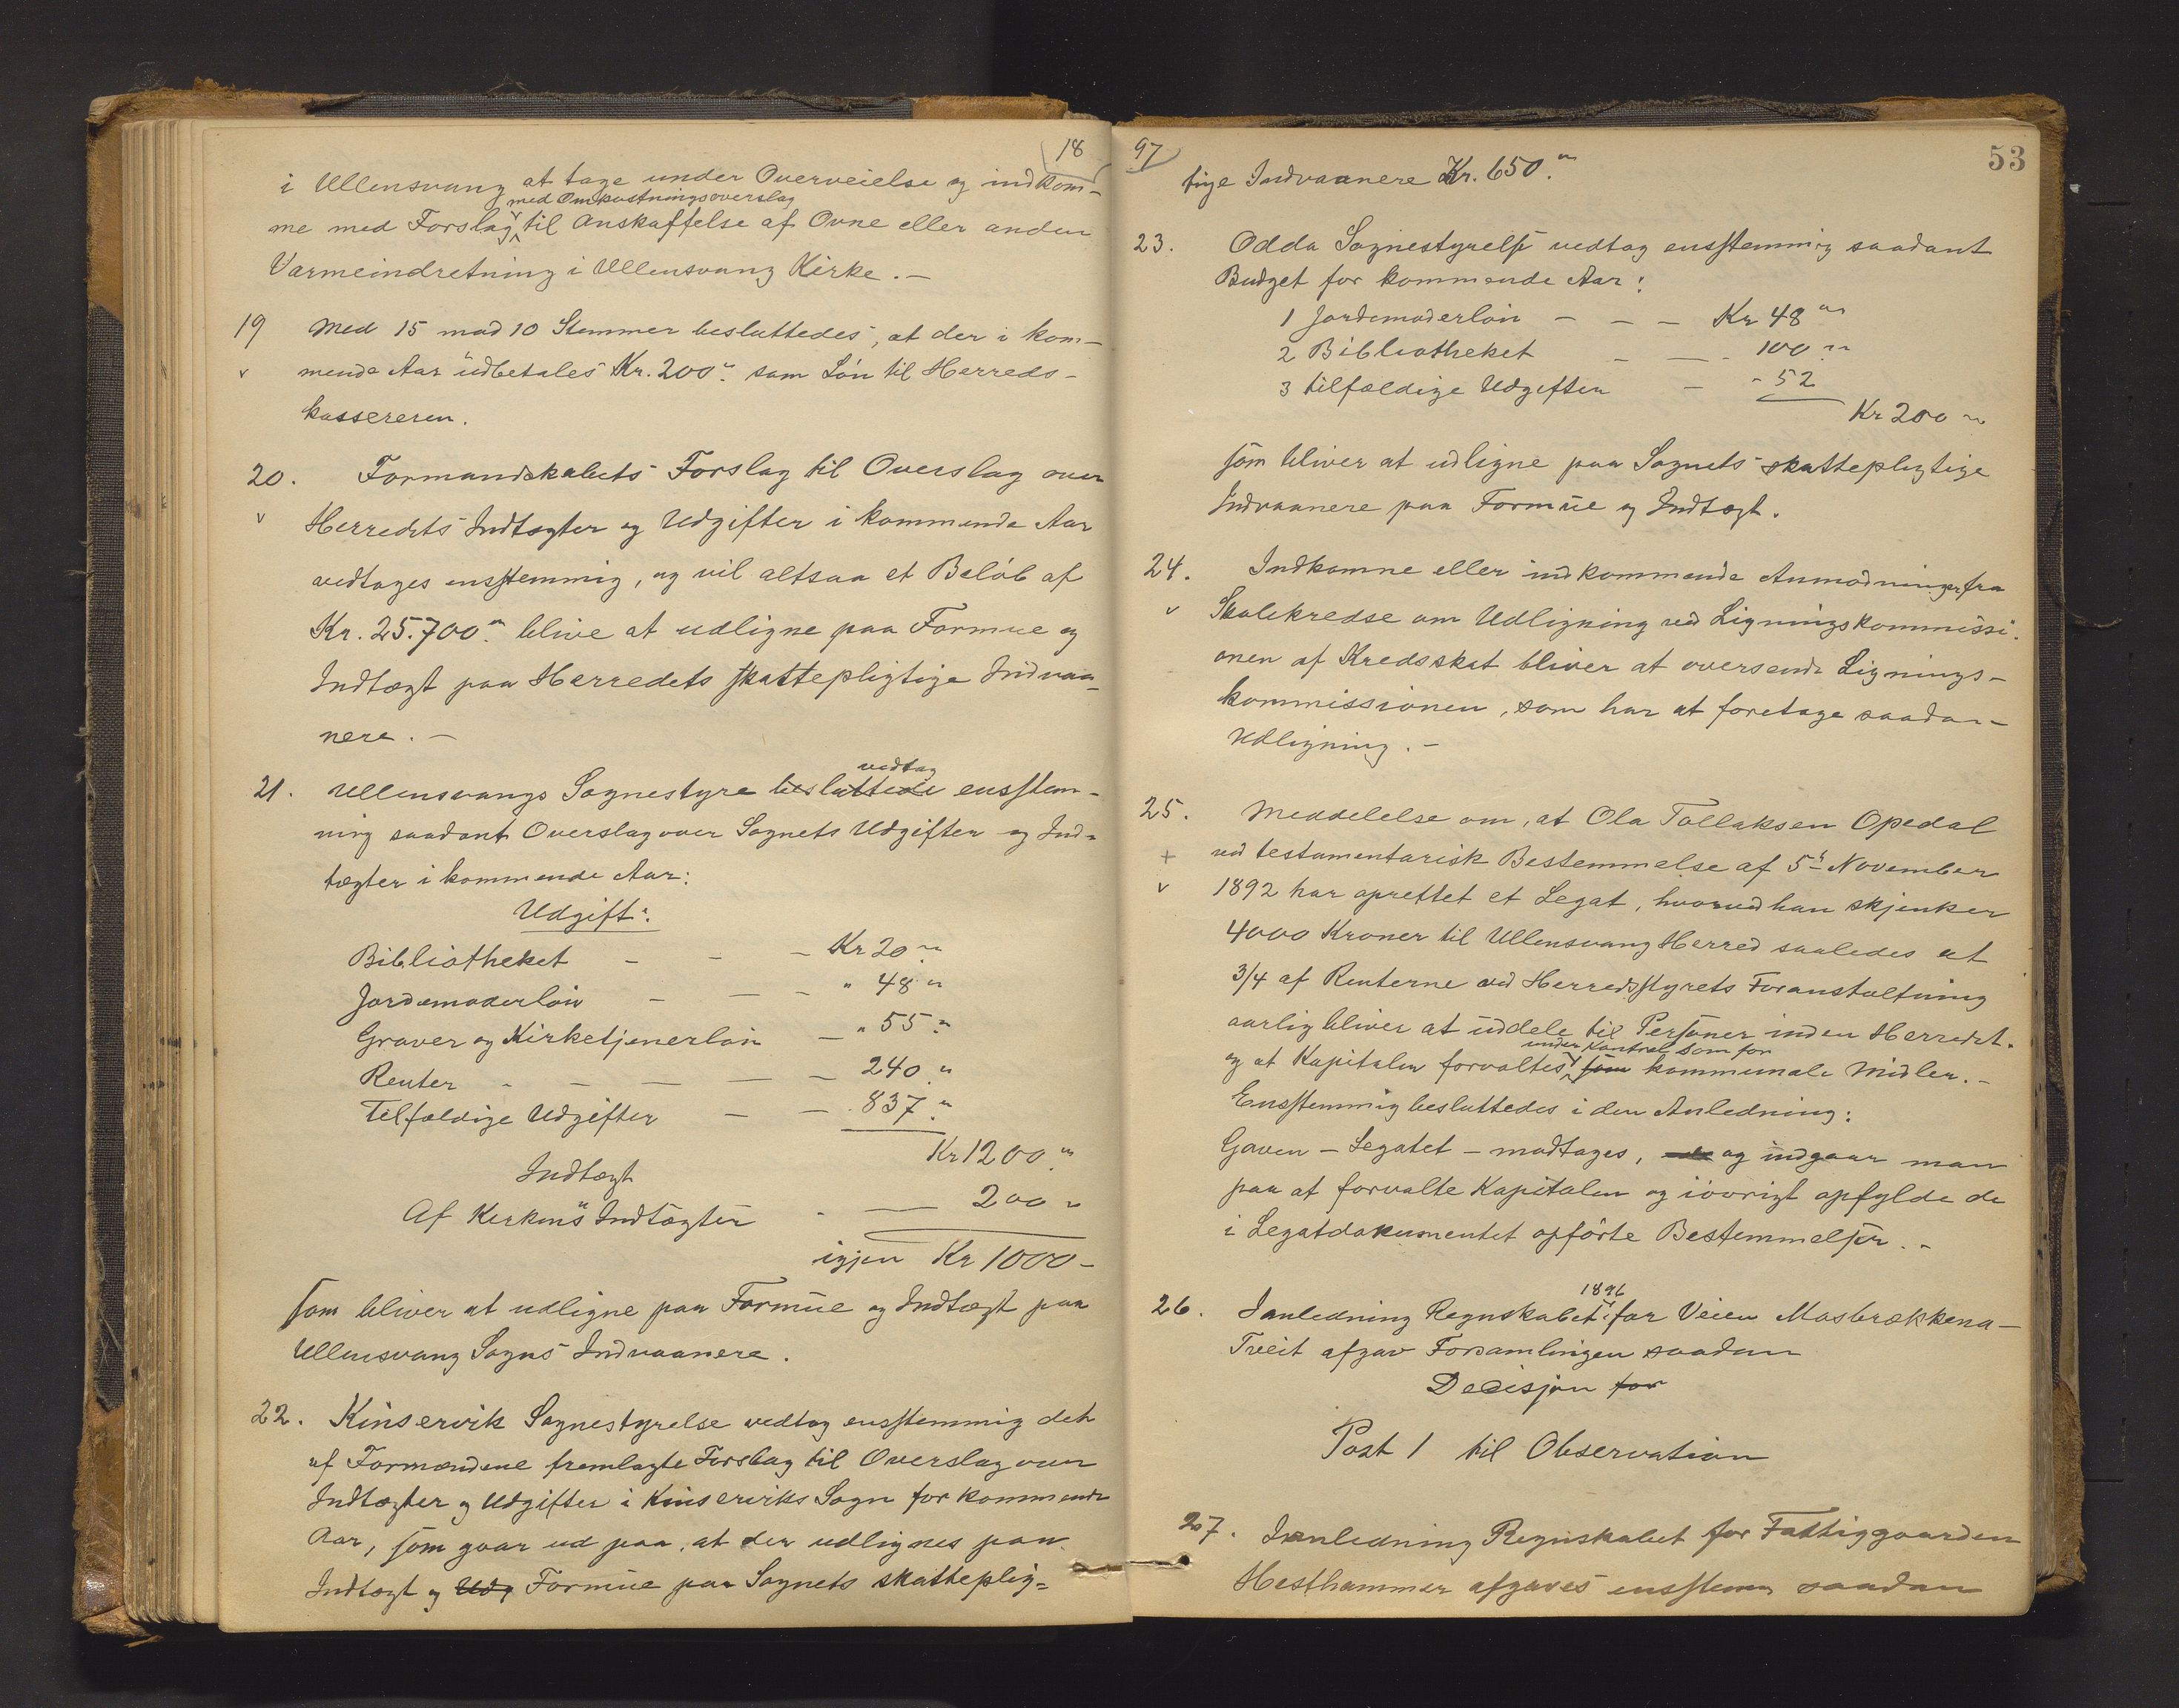 18
i Ullensvang at tage under Overveielse og indkom-
med Omkostningsoverslag
me med Forslag til Anskaffelse af Ovne eller anden
Varmeindretning i Ullensvang Kirke.-
19 Med 15 mod 10 Stemmer besluttedes, at der i kom-
v mende Aar udbetales Kr. 200" som Løn til Herreds-
kassereren.
20. Formandskabets Forslag til Overslag over
v Herredets Indtægter og Udgifter i kommende Aar
vedtages ensstemmig, og vil altsaa et Beløb af
Kr. 25.700" blive at udligne paa Formue og
Indtægt paa Herredets skattepligtige Indvaa-
nere.-
vedtog
21. Ullensvangs Sognestyre besluttede ensstem-
mig saadant Overslag over Sognets Udgifter og Ind-
tægter i kommende Aar:
Udgift:
Bibliotheket - - - Kr 20 "
Jordemoderløn - - - " 48 "
Graver og Kirketjenerløn - " 55 "
Renter - - - - - 240 "
Tilfældige Udgifter - - 837 "
Kr 1200 "
Indtægt
Af Kirkens Indtægter - - 200 "
igjen Kr 1000 -
som bliver at udligne paa Formue og Indtægt paa
Ullensvang Sogns Indvaanere.
22. Kinservik Sognestyrelse vedtog ensstemmig det
af Formændene fremlagte Forslag til Overslag over
Indtægter og Udgifter i Kinserviks Sogn for kommende
Aar, som gaar ud paa, at der udlignes paa
Indtægt og Udg Formue paa Sognets skatteplig-
97
53
tige Indvaanere Kr. 650."
23. Odda Sognestyrelse vedtog ensstemmig saadant
Budget for kommende Aar:
1 Jordemoderløn - - - Kr 48 "
2 Bibliotheket - - - 100 "
3 tilfældige Udgifter - - 52
Kr 200 "
som bliver at udligne paa Sognets skattepligtige
Indvaanere paa Formue og Indtægt.
24. Indkomne eller indkommende Anmodninger fra
v Skolekredse om Udligning ved Ligningskommissi-
onen af Kredsskat bliver at oversende Lignings-
kommissionen, som har at foretage saadan
Udligning.-
25. Meddelelse om, at Ola Tollaksen Opedal
+ ved testamentarisk Bestemmelse af 5te November
v 1892 har oprettet et Legat, hvorved han skjenker
4000 Kroner til Ullensvang Herred saaledes at
3/4 af Renterne ved Herredsstyrets Foranstaltning
aarlig bliver at uddele til Personer inden Herredet.
under Kontrol som for
og at Kapitalen forvaltes som kommunale Midler.-
Ensstemmig besluttedes i den Anledning:
Gaven - Legatet - modtages, og indgaar man
paa at forvalte Kapitalen og iøvrigt opfylde de
i Legatdokumentet opførte Bestemmelser.-
1896
26. I anledning Regnskabet for Veien Mosbrækkena-
Treit afgav Forsamlingen saadan
Decisjon for
Post 1 til Observation
27. I anledning Regnskabet for Fattiggaarden
Hesthammer afgaves ensstem saadan